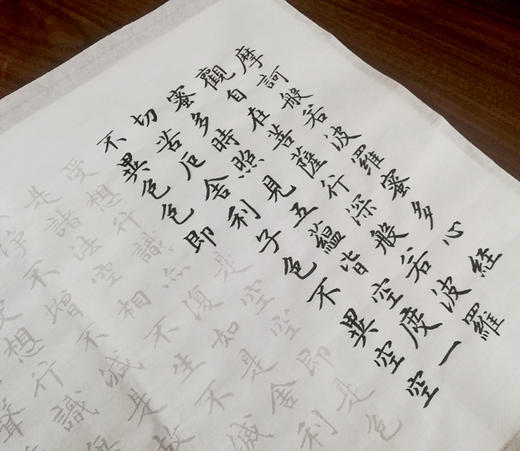 摩訶般若波羅蜜多心経
觀自在菩薩行深般若波羅
蜜多時照見五蘊皆空度一
切苦厄舍利子色不異空空
不異色色即是空空即是色
受想行識亦復如是舍利
是諸法空相不生不滅
淨不增不減是故
受想行識
聲